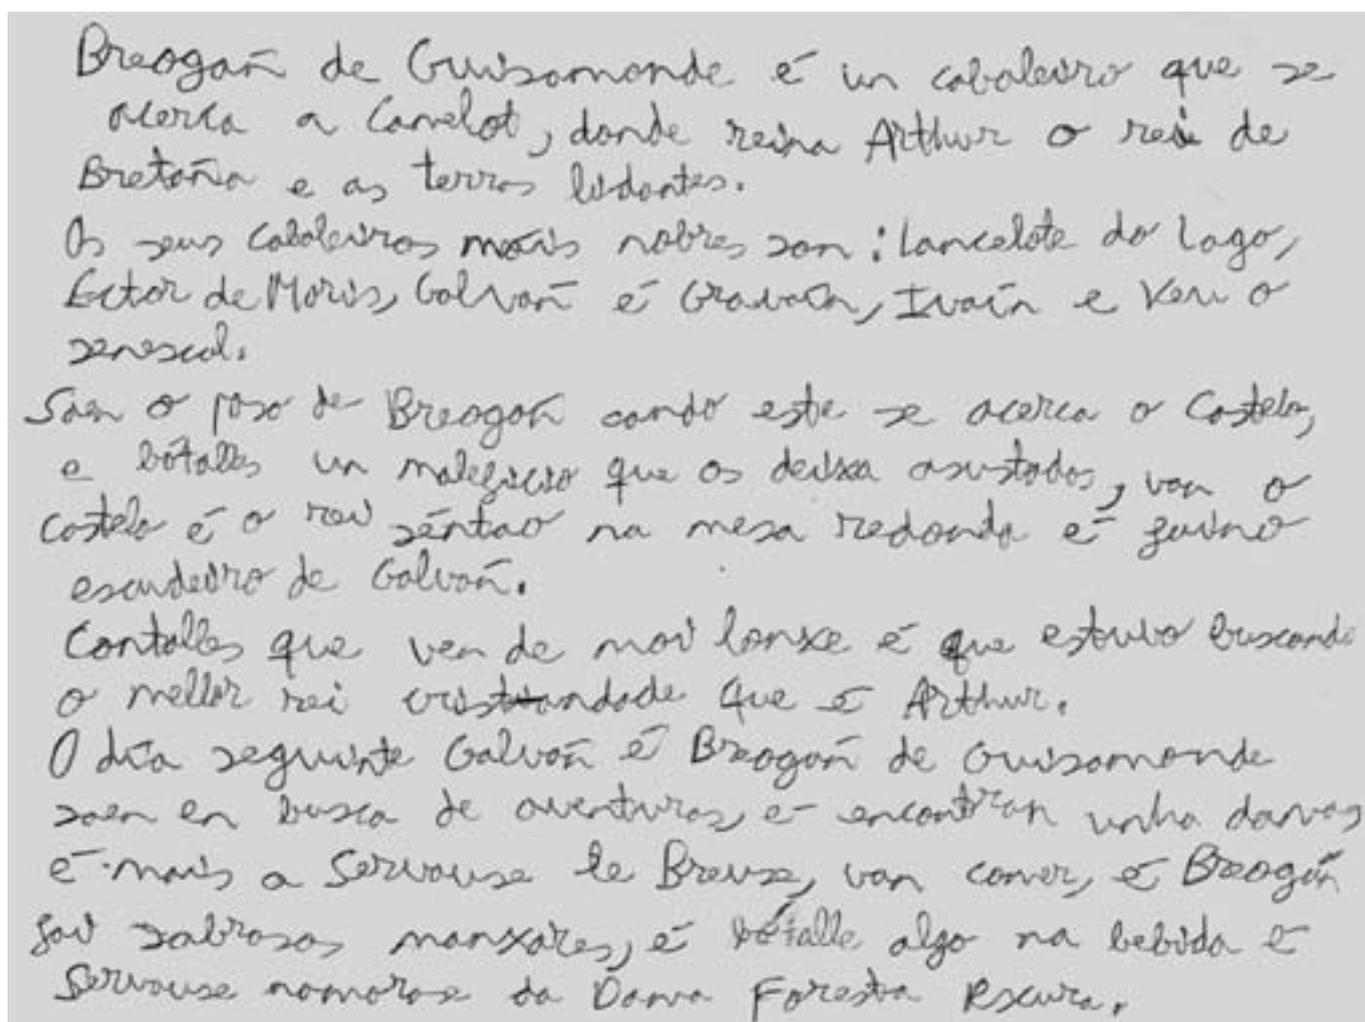 Breogań de Guisamonde é un cabaleiro que se
acerca a Camelot, donde reina Arthur o rei de
Bretaña e as terras lidantes.
Os seus cabaleiros máis nobres son: Lancelote do Lago,
Ector de Maris, Galvań é Gravaín, Ivaín e Keu o
senescal.
Saen o paso de Breogań cando este se acerca o Castelo,
e bótalles un maleficio que os deixa asustados, van o
castelo é o rei séntao na mesa redonda é
escudeiro de Galvań.
Contalles que ven de moi lonxe é que estuvo buscando
o mellor rei cristiandade que é Arthur.
O día seguinte Galvań é Breogań de Guisamonde
saen en busca de aventuras, é encontran unha damas
é máis a Servause le Breuse, van comer, é Breogán
fai sabrosos manxares, é bótalle algo na bebida é
Servause namorase da Dama Foresta Escura.